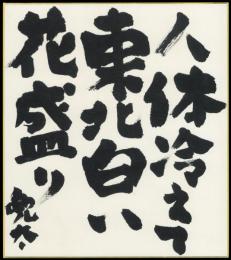 人体冷えて
東北白い
花盛り
兜太